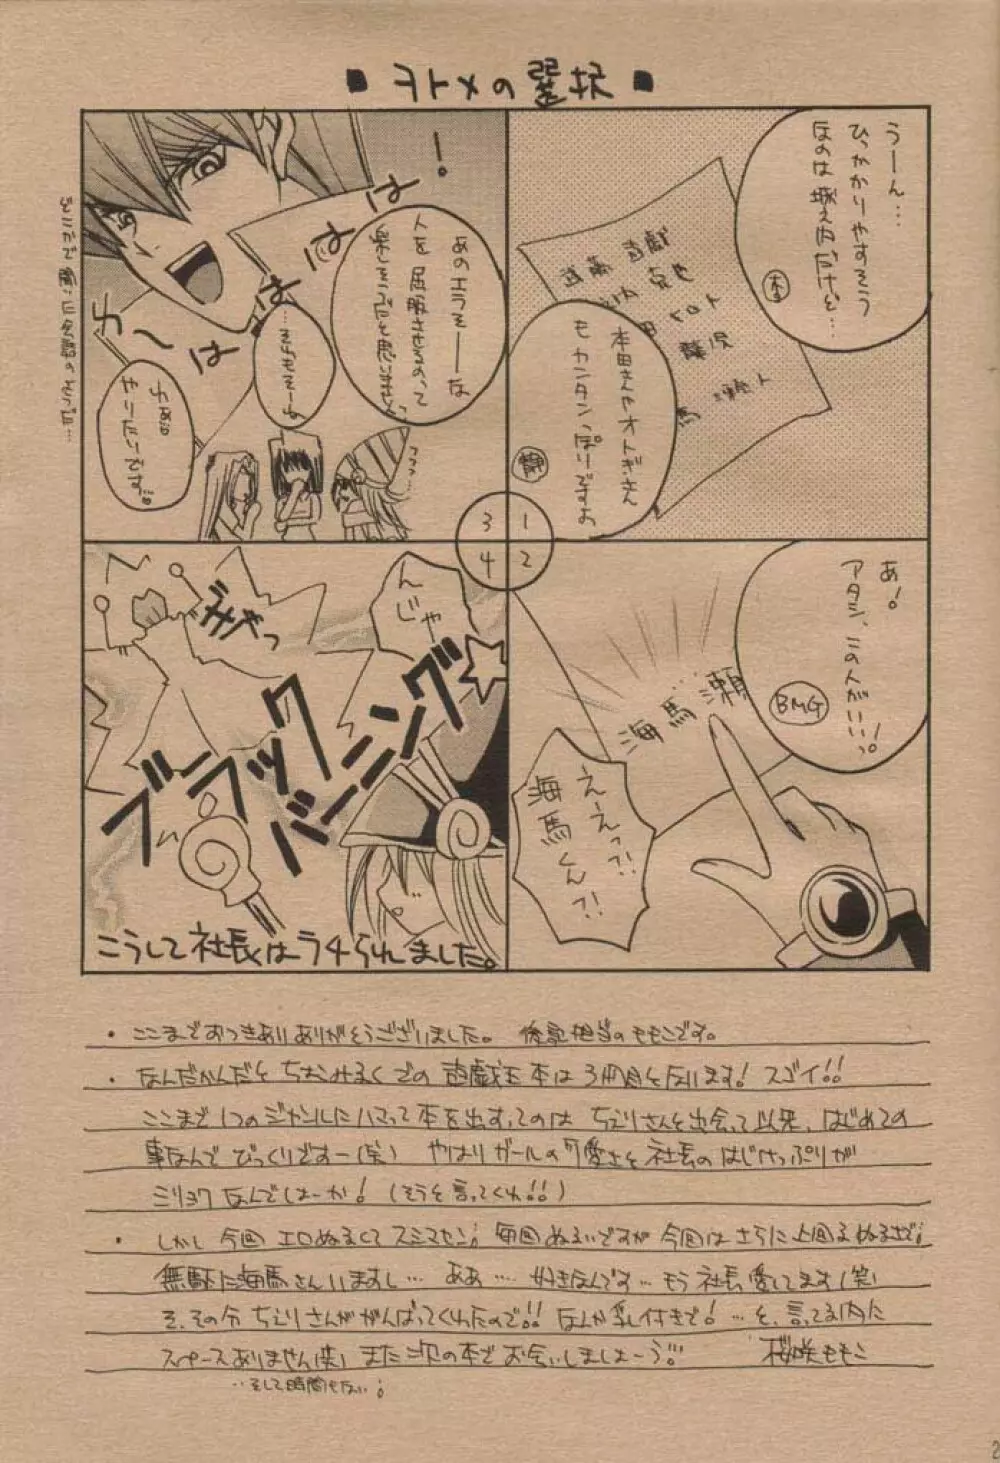 ■ ヲトメの選択 ■
うーん…
ひっかかりやすそう
なのは城之内だけど…
杏
遊戯
本田さんやオトギさん
もカンタンっぽいですよ
静
あ!
アタシ、この人がいいっ!
BMG
海馬瀬
えーえっ?!
海馬くん?!
あのエラそーな
人を屈服させるのって
楽しそうだと思いません?
…そりゃそーよ
やりたいです。
コワワ…
は は は
んじゃ
ブラック
バーニング
☆
こうして社長はラチられました。
1
2
3
4
・ここまでおつきあいありがとうございました。 後記担当のももこです。
・なんだかんだとちぇみるくでの遊戯王本は3冊目となります! スゴイ!!
ここまで1つのジャンルにハマって本を出すってのは ちぇりさんと出会って以来、はじめての
事なんでびっくりですー(笑) やはりガールの可愛さと社長のはじけっぷりが
ミリョクなんでしょーか! (そうと言ってくれ!!)
・しかし今回エロぬるくてスミマセン; 毎回ぬるいですが今回はさらに上回るぬるさで;
無駄に海馬さんいますし… ああ…. 好きなんです… もう社長愛してます(笑)
そ、その分ちぇりさんががんばってくれたので!! なんか乳付きで! …と、言ってる内に
スペースありません(笑) また次の本でお会いしましょーう!! 桜咲ももこ
‥そして時間もない;
2